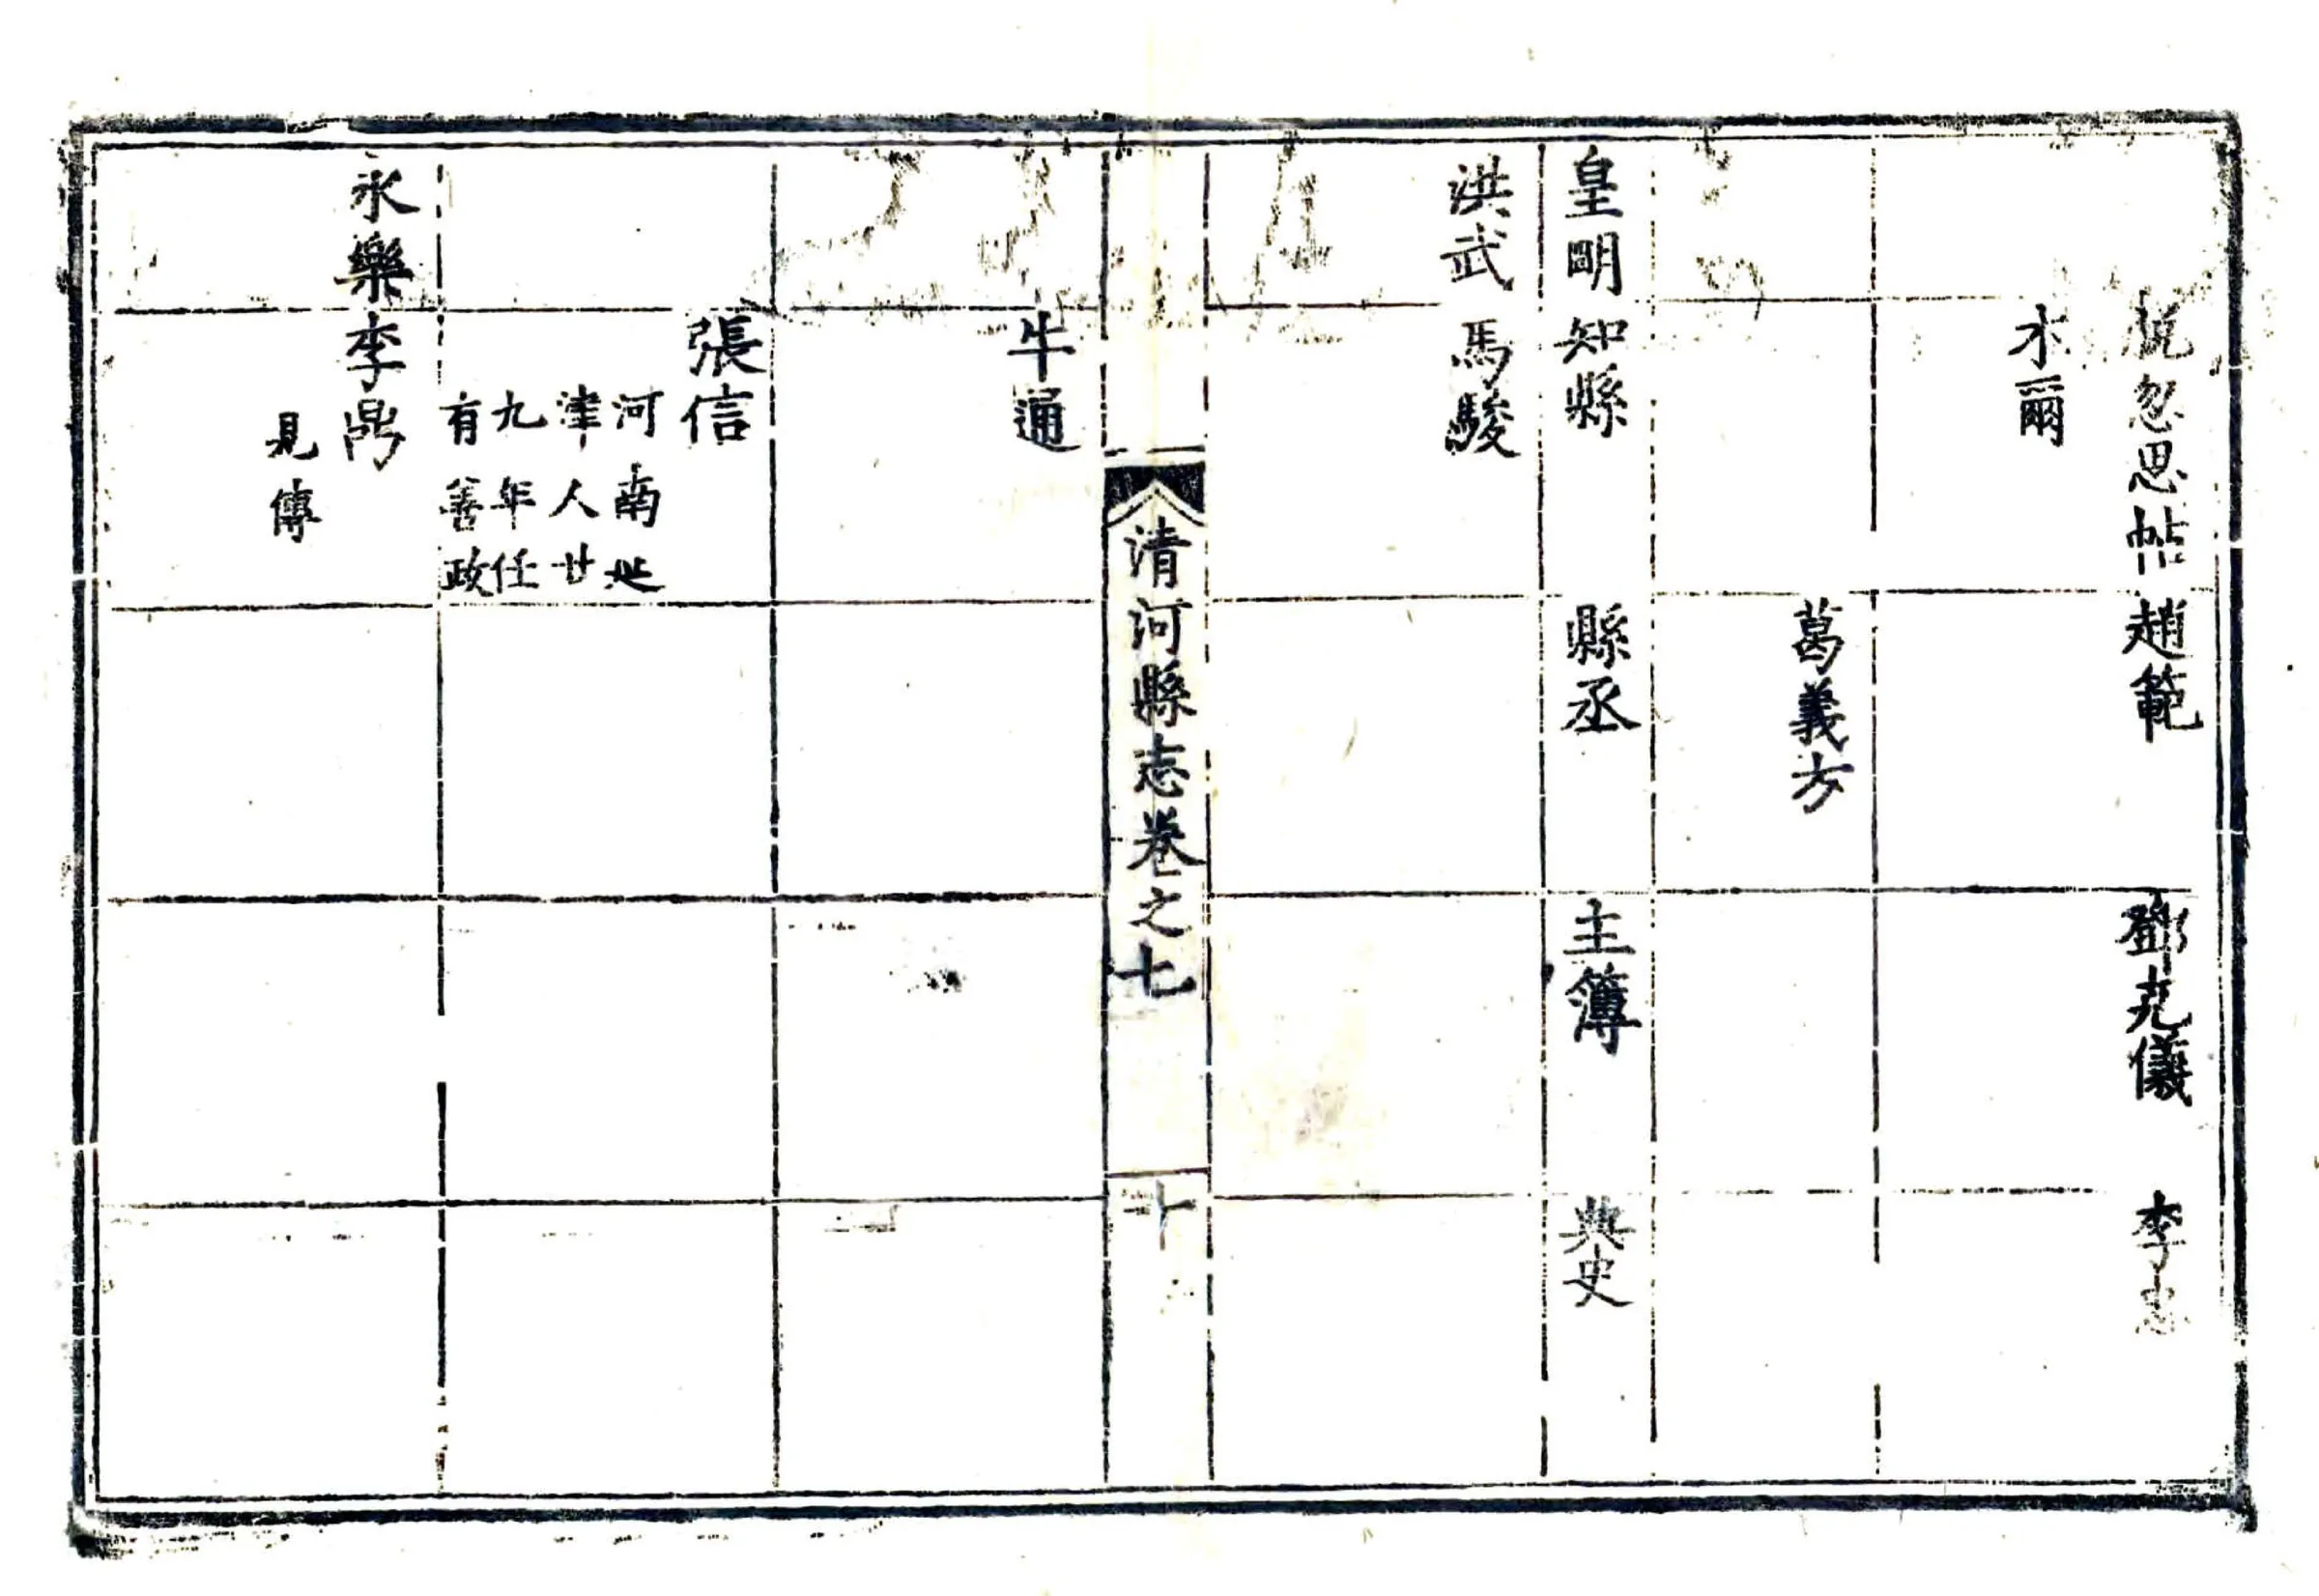 忽思帖 趙範 鄧克儀 李忠
木爾
葛義方
皇明 知縣 縣丞 主簿 典史
洪武 馬駿
清河縣志卷之七 十
牛通
張信
河南
津人廿
九年任
有善政
永樂 李鼎
見傳